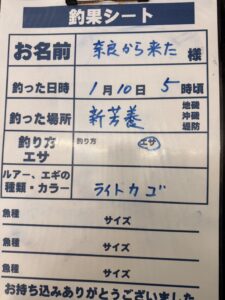 釣果シート
お名前 奈良から来た 様
釣った日時 1月10日 5時頃
釣った場所 新芳養 地磯 沖磯 堤防
釣り方 エサ 釣り方 エサ
ルアー、エギの種類・カラー ライトカゴ
魚種 サイズ
魚種 サイズ
魚種 サイズ
お持ち込みありがとうございました